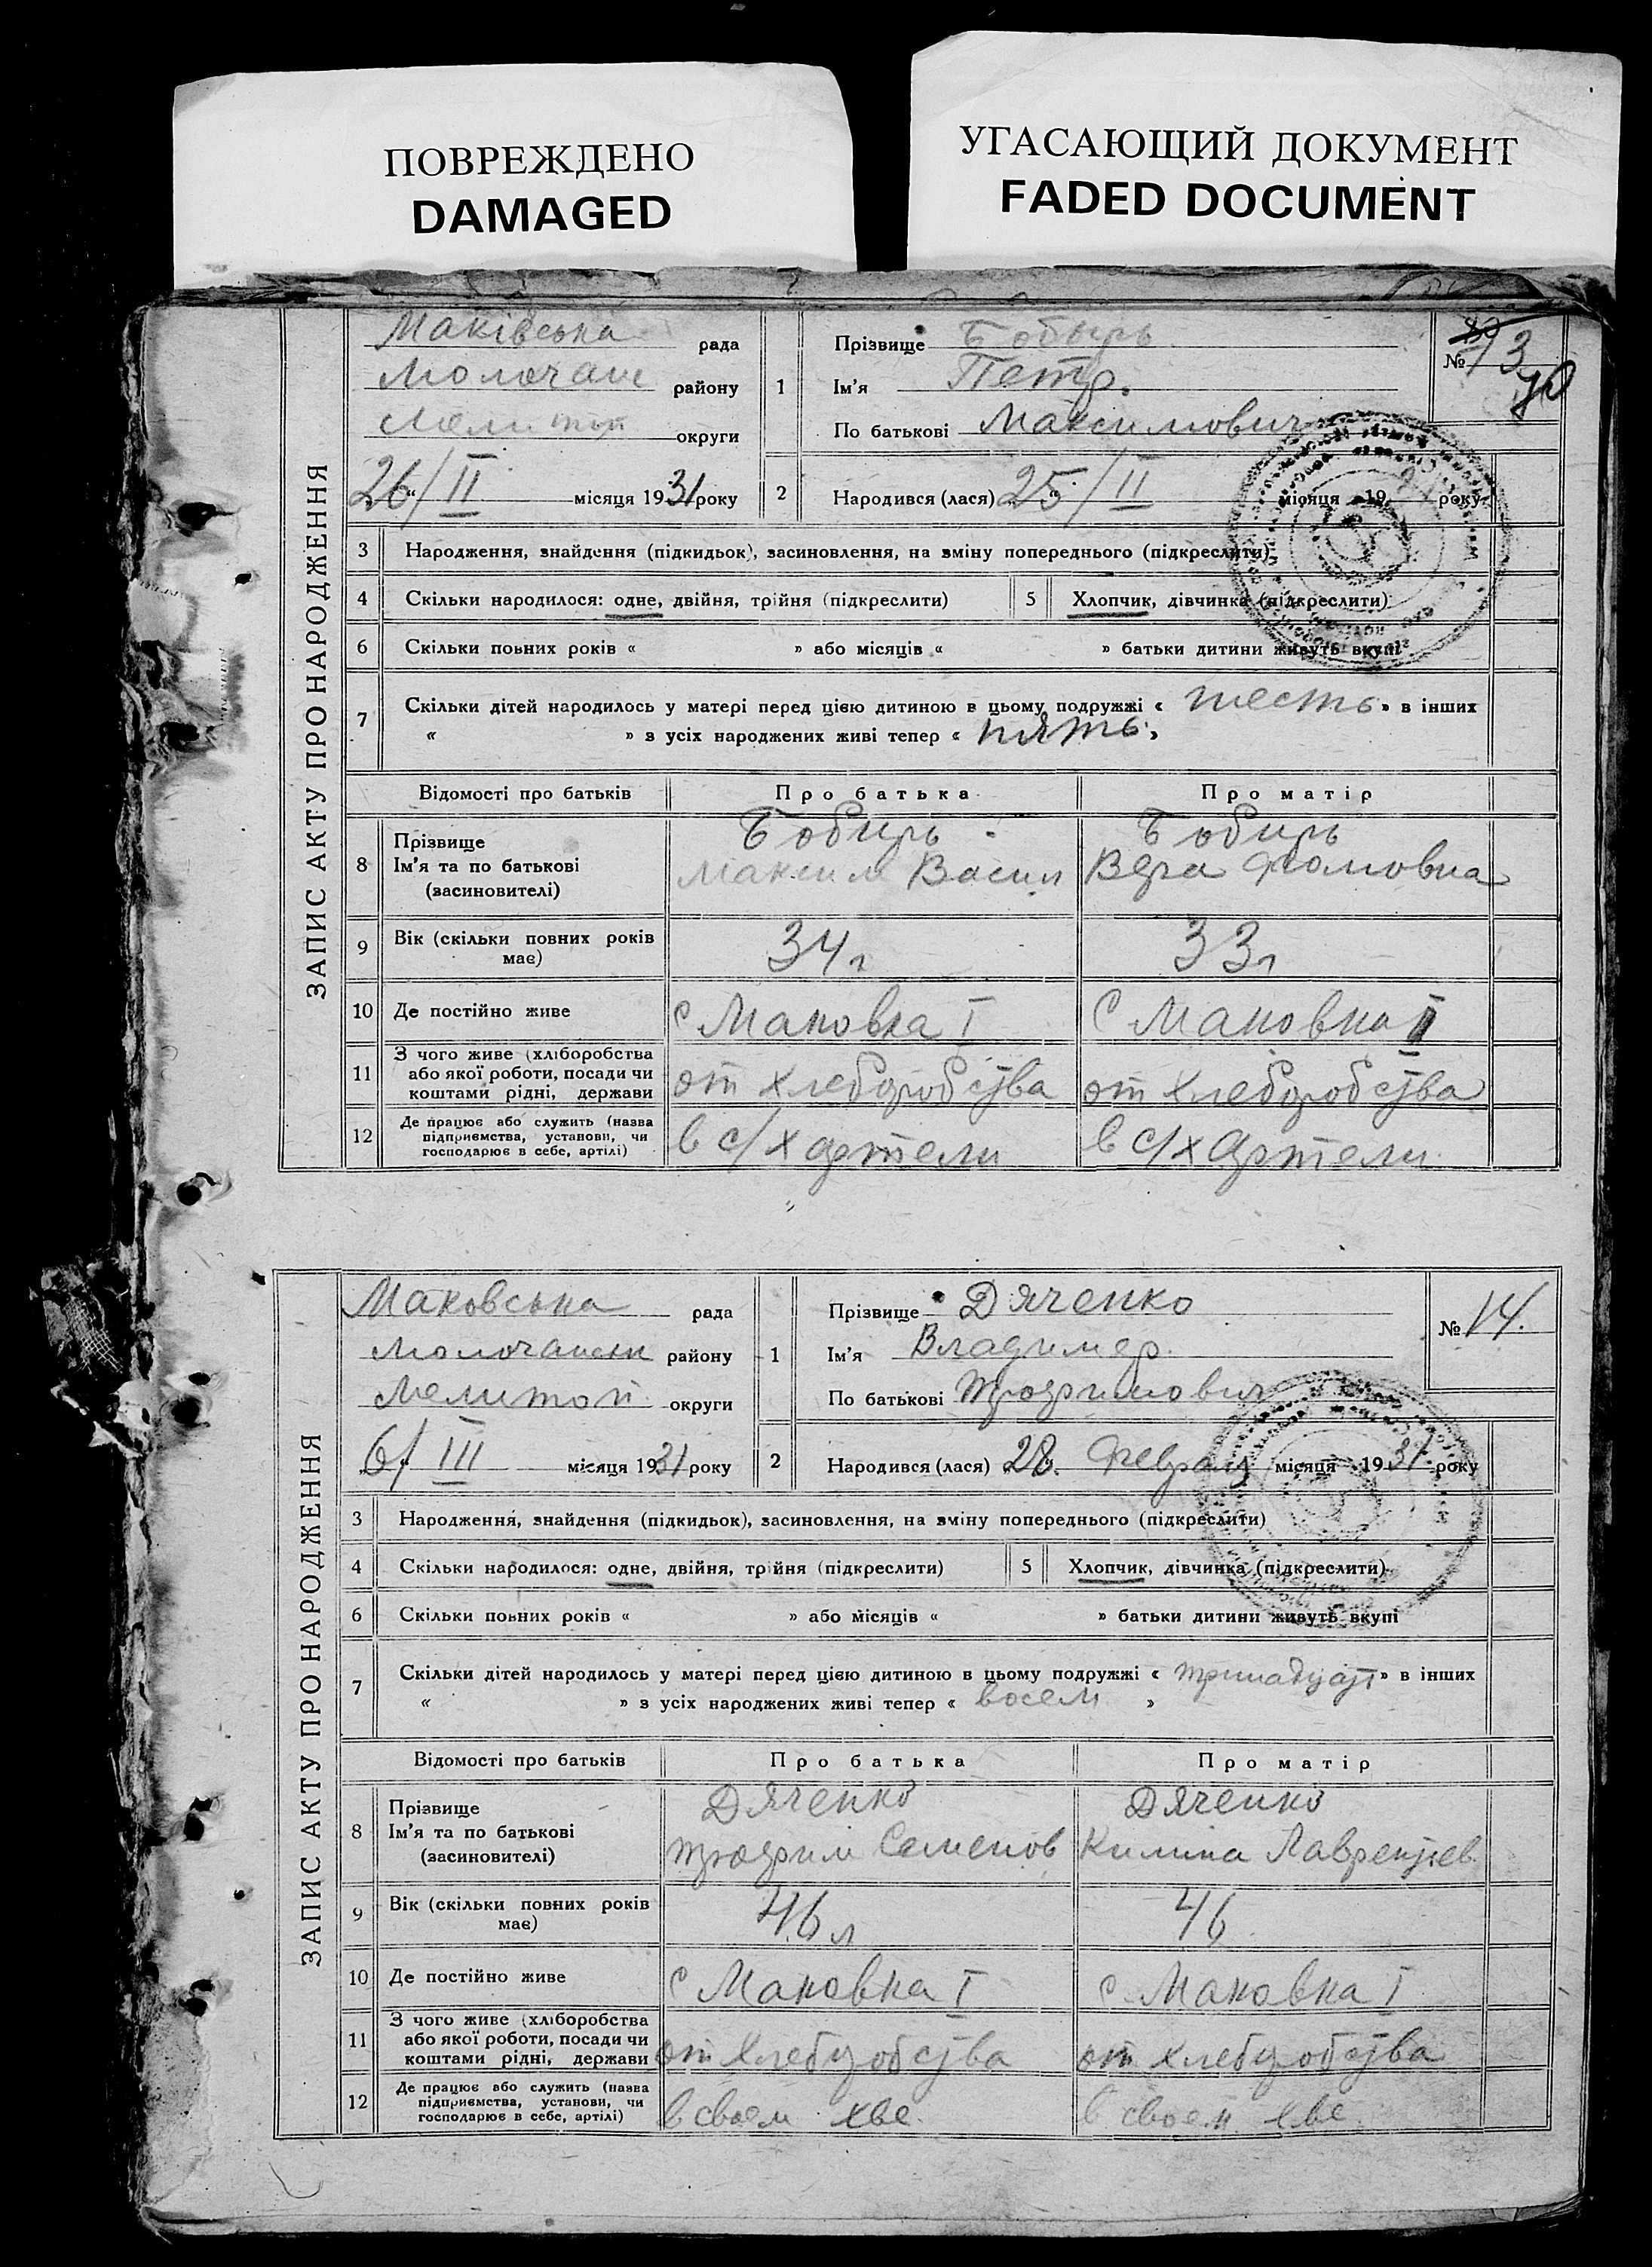 ПОВРЕЖДЕНО
DAMAGED
УГАСАЮЩИЙ ДОКУМЕНТ
FADED DOCUMENT
ЗАПИС АКТУ ПРО НАРОДЖЕННЯ
Маківська рада
Молочан району
округи
26/II місяця 1931 року
1 Прізвище Бобырь
Ім'я Петр.
По батькові Максимович
№ 13
70
2 Народився (лася) 25/II місяця 1931 року
3 Народження, знайдення (підкидьок), засиновлення, на зміну попереднього (підкреслити)
4 Скільки народилося: одне, двійня, трійня (підкреслити) 5 Хлопчик, дівчинка (підкреслити)
6 Скільки повних років « » або місяців « » батьки дитини живуть вкупі
7 Скільки дітей народилось у матері перед цією дитиною в цьому подружжі « шесть » в інших
« » з усіх народжених живі тепер « пять »
Відомості про батьків Про батька Про матір
8 Прізвище Бобирь Бобирь
Ім'я та по батькові Максим Васил Вера Фомовна
(засиновителі)
9 Вік (скільки повних років має) 34 г 33 г
10 Де постійно живе с Маковка I с Маковка I
11 З чого живе (хліборобства або якої роботи, посади чи коштами рідні, держави от хлеборобства от хлеборобства
12 Де працює або служить (назва підприємства, установи, чи господарює в себе, артілі) в с/х артели в с/х артели
ЗАПИС АКТУ ПРО НАРОДЖЕННЯ
Маковська рада
Молочанск району
Мелитоп округи
6/III місяця 1931 року
1 Прізвище Дяченко
Ім'я Владимер.
По батькові Трофимович
№ 14.
2 Народився (лася) 28. Февраля місяця 1931 року
3 Народження, знайдення (підкидьок), засиновлення, на зміну попереднього (підкреслити)
4 Скільки народилося: одне, двійня, трійня (підкреслити) 5 Хлопчик, дівчинка (підкреслити)
6 Скільки повних років « » або місяців « » батьки дитини живуть вкупі
7 Скільки дітей народилось у матері перед цією дитиною в цьому подружжі « тринадцат » в інших
« » з усіх народжених живі тепер « восем »
Відомості про батьків Про батька Про матір
8 Прізвище Дяченко Дяченко
Ім'я та по батькові Трофим Семенов Килина Лаврентиев
(засиновителі)
9 Вік (скільки повних років має) 46 л 46
10 Де постійно живе с Маковка I с Маковка I
11 З чого живе (хліборобства або якої роботи, посади чи коштами рідні, держави от хлеборобства от хлеборобства
12 Де працює або служить (назва підприємства, установи, чи господарює в себе, артілі) в своем хве. в своем хве